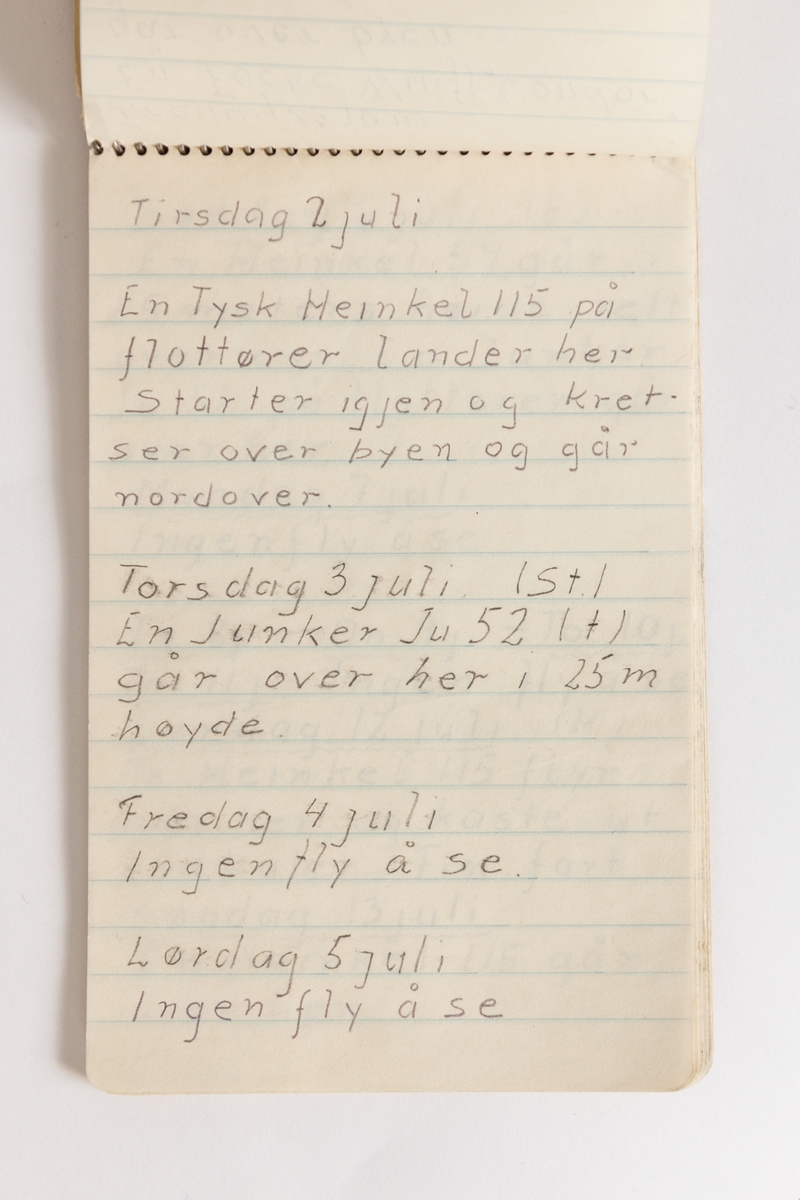 Tirsdag 2 juli
En Tysk Heinkel 115 på
flottører lander her.
Starter igjen og kret-
ser over byen og går
nordover.
Torsdag 3 juli. (St.)
En Junker Ju 52 (t)
går over her i 25 m
høyde.
Fredag 4 juli
Ingen fly å se.
Lørdag 5 juli
Ingen fly å se